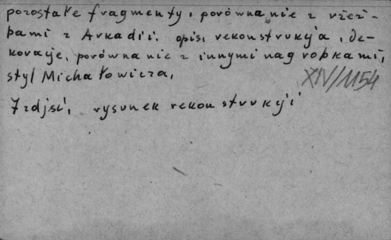 pozostałe fragmenty, porównanie z rzeź-
bami z Arkadii. opis, rekonstrukcja, de-
koracje, porównanie z innymi nagrobkami,
styl Michałowicza,
XIV/1154
7 zdjęć, rysunek rekonstrukcji